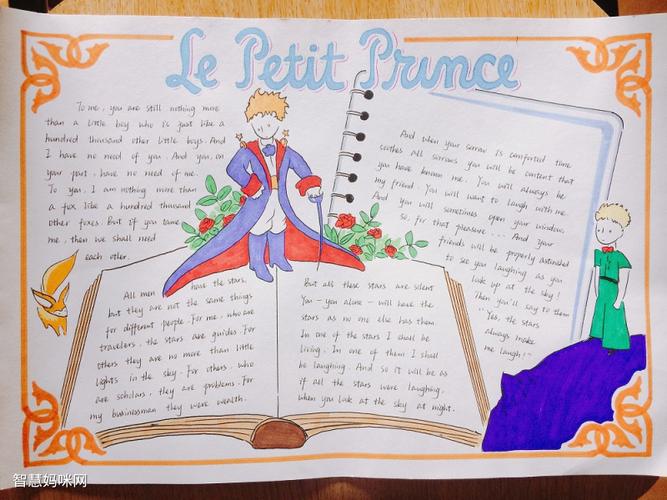 Le Petit Prince
To me, you are still nothing more
than a little boy who is just like a
hundred thousand other little boys. And
I have no need of you. And you, on
your part, have no need of me.
To you, I am nothing more than
a fox like a hundred thousand
other foxes. But if you tame
me, then we shall need
each other.
All men have the stars,
but they are not the same things
for different people. For me, who are
travelers, the stars are guides. For
others they are no more than little
lights in the sky. For others, who
are scholars, they are problems. For
my businessman they were wealth.
But all these stars are silent
You - you alone - will have the
stars as no one else has them.
In one of the stars I shall be
living. In one of them I shall
be laughing. And so it will be as
if all the stars were laughing,
when you look at the sky at night.
And when your sorrow is comforted time
soothes all sorrows you will be content that
you have known me. You will always be
my friend. You will want to laugh with me.
And you will sometimes open your window,
so, for that pleasure... And your
friends will be properly astonished
to see you laughing as you
look up at the sky!
Then you'll say to them
"Yes, the stars
always make
me laugh!"
智慧妈咪网